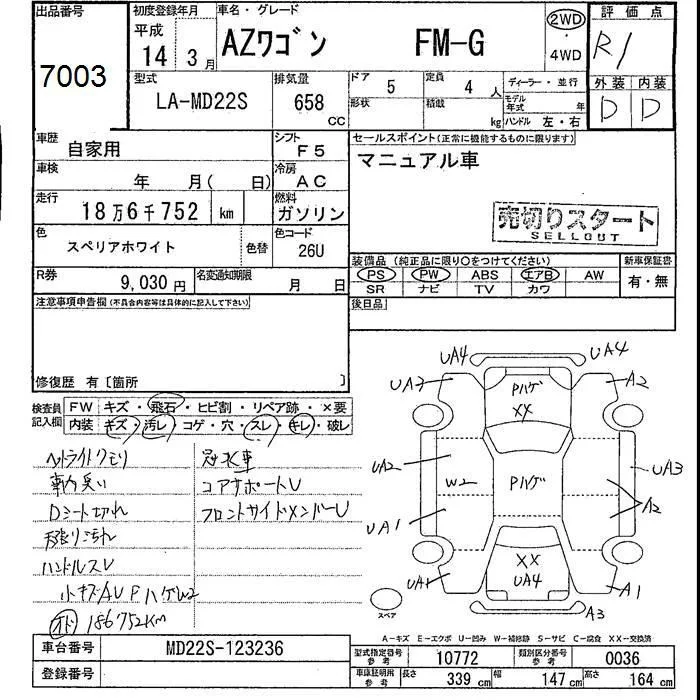 出品番号
7003
初度登録年月
平成
14年 3月
車名・グレード
AZワゴン FM-G
2WD
・
4WD
評価点
R1
外装 内装
D D
型式
LA-MD22S
排気量
658 CC
ドア
5
定員
4 人
形状
積載
kg
ディーラー・並行
モデル年式 年
ハンドル 左・右
車歴
自家用
シフト
F5
車検
年 月( 日)
冷房
AC
走行
18万6千752 km
燃料
ガソリン
色
スペリアホワイト
色替
色コード
26U
R券
9,030円
名変通知期限
月 日
セールスポイント(正常に機能するものに限ります)
マニュアル車
売切りスタート
SELLOUT
装備品 (純正品に限り○をつけてください)
新車保証書
PS PW ABS エアB AW
有・無
SR ナビ TV カワ
後日品
注意事項申告欄(不具合内容等は具体的に記入して下さい)
修復歴 有〔箇所 〕
検査員記入欄
FW キズ・飛石・ヒビ割・リペア跡・×要
内装 キズ・汚レ・コゲ・穴・スレ・キレ・破レ
ヘットライトクモリ
車内臭い
Dシート切れ
天張り汚れ
ハンドルスレ
小キズAUPハゲW2
186752KM
冠水車
コアサポートU
フロントサイドメンバーU
UA4 UA4
UA3 Pハゲ A2
XX
UA2 W2 Pハゲ UA3
UA1 A2
XX
UA1 UA4 A1
A3
スペア
A−キズ E−エクボ U−凹み W−補修跡 S−サビ C−腐食 XX−交換済
車台番号 MD22S-123236
登録番号
型式指定番号 参考 10772
類別区分番号 参考 0036
車庫証明用 参考 長さ 339 cm 幅 147 cm 高さ 164 cm